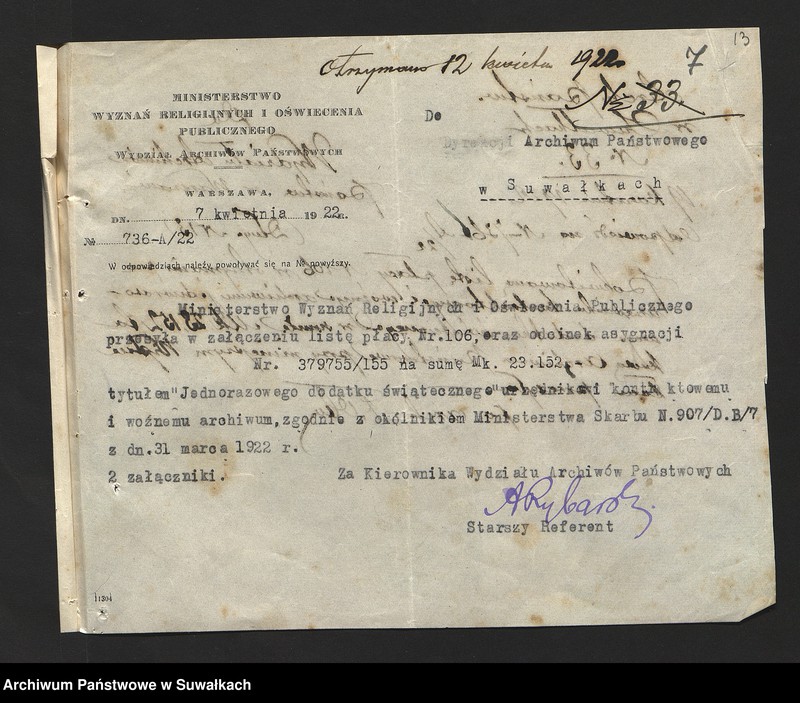 13
7
Otrzymano 12 kwietnia 1922
№ 33.
MINISTERSTWO
WYZNAŃ RELIGIJNYCH I OŚWIECENIA
PUBLICZNEGO
WYDZIAŁ ARCHIWÓW PAŃSTWOWYCH
WARSZAWA.
DN. 7 kwietnia 1922 R.
№ 736-A/22
W odpowiedziach należy powoływać się na № powyższy.
Do
Dyrekcji Archiwum Państwowego
w Suwałkach
Ministerstwo Wyznań Religijnych i Oświecenia Publicznego
przesyła w załączeniu listę płacy Nr.106, oraz odcinek asygnacji
Nr. 379755/155 na sumę Mk. 23.152.
tytułem "Jednorazowego dodatku świątecznego" urzędnikowi kontraktowemu
i woźnemu archiwum, zgodnie z okólnikiem Ministerstwa Skarbu N.907/D.B/7
z dn.31 marca 1922 r.
2 załączniki.
Za Kierownika Wydziału Archiwów Państwowych
ARybarsk
Starszy Referent
11304
Archiwum Państwowe w Suwałkach